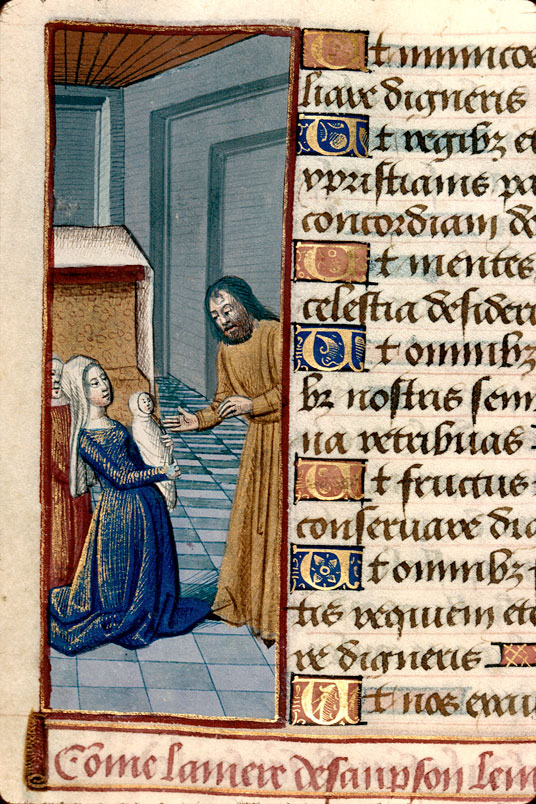 Ut inimicos
liare digneris
Ut regibz et
xpristianis pa
concordiam de
Ut mentes
celestia desideri
Ut omnibz
bz nostris sem
na retribuas
Ut fructus
conservare dig
Ut omnibz
tis requiem ete
re digneris
Ut nos exau
Cōme la mere de sanpson